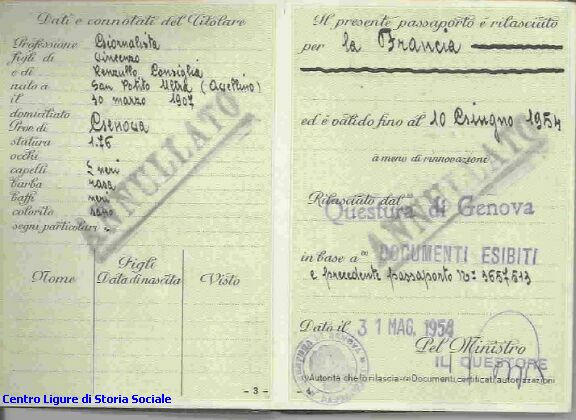 Dati e connotati del Titolare
Professione Giornalista
figli di Vincenzo
e di Renzullo Consiglia
nato a San Potito Ultra (Avellino)
il 30 marzo 1907
domiciliato
Prov di Genova
statura 1.76
occhi
capelli neri
barba rasa
baffi neri
colorito sano
segni particolari
ANNULLATO
Figli
Nome Data di nascita Visto
- 3 -
Il presente passaporto è rilasciato
per la Francia
ed è valido fino al 10 Giugno 1954
a meno di rinnovazioni
ANNULLATO
Rilasciato dal
Questura di Genova
in base a DOCUMENTI ESIBITI
e precedente passaporto No: 3657513
Dato il 31 MAG. 1954
Pel Ministro
IL QUESTORE
(1) Autorità che lo rilascia - (2) Documenti, certificati, autorizzazioni
Centro Ligure di Storia Sociale